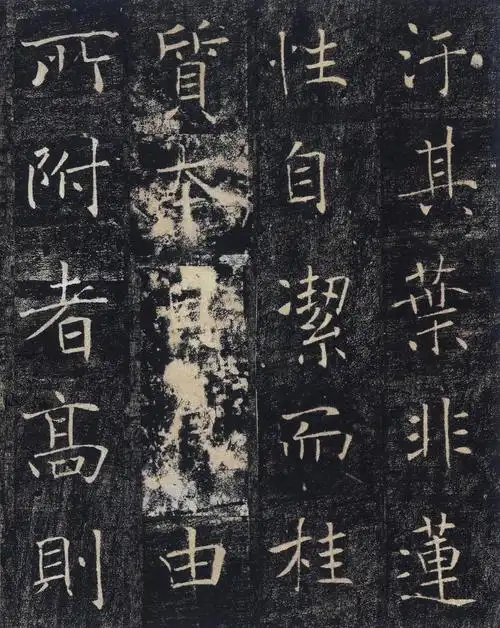 汙其葉非蓮
性自潔而桂
質本由
所附者髙則